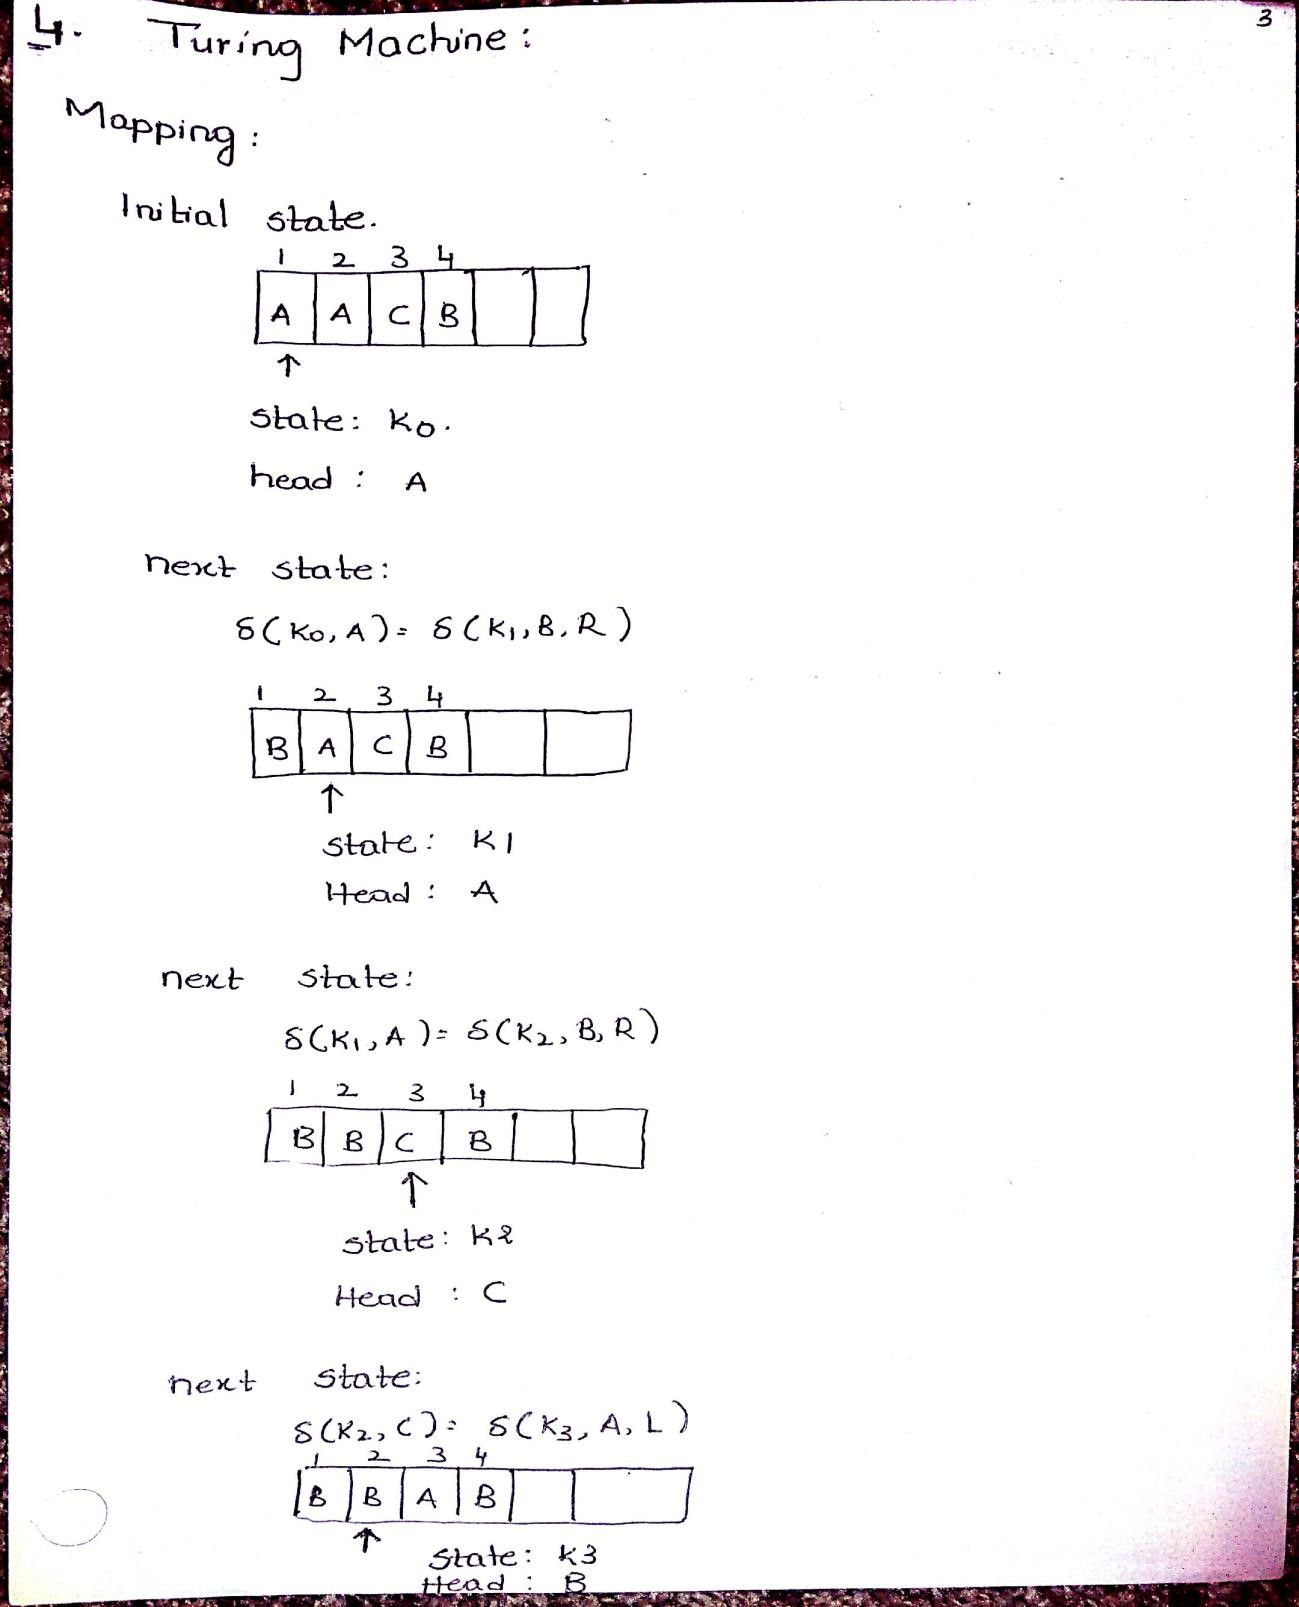 3
4. Turing Machine:
Mapping:
Initial state.
1 2 3 4
A A C B
↑
state: K0.
head : A
next state:
δ(K0, A) = δ(K1, B, R)
1 2 3 4
B A C B
↑
state: K1
Head : A
next state:
δ(K1, A) = δ(K2, B, R)
1 2 3 4
B B C B
↑
state: K2
Head : C
next state:
δ(K2, C) = δ(K3, A, L)
1 2 3 4
B B A B
↑
state: K3
Head : B